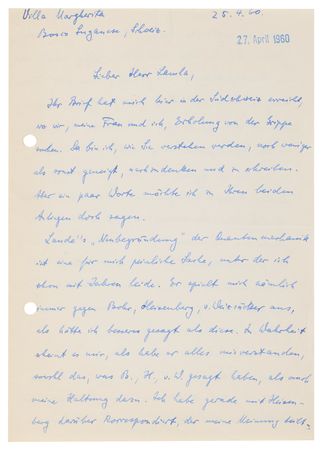 Villa Margherita 25.4.60.
Bosco Luganese, Schweiz.
27. April 1960
Lieber Herr Lamla,
Ihr Brief hat mich hier in der Südschweiz erreicht,
wo wir, meine Frau und ich, Erholung von der Grippe
suchen. Da bin ich, wie Sie verstehen werden, noch weniger
als sonst geneigt, nachzudenken und zu schreiben.
Aber ein paar Worte möchte ich zu Ihren beiden
Anlagen doch sagen.
Landé's „Neubegründung" der Quantenmechanik
ist eine für mich peinliche Sache, unter der ich
schon seit Jahren leide. Er spielt mich nämlich
immer gegen Bohr, Heisenberg, v. Weizsäcker aus,
als hätte ich besseres gesagt als diese. In Wahrheit
scheint es mir, als habe er alles missverstanden,
sowohl das, was B., H., v. W. gesagt haben, als auch
meine Haltung dazu. Ich habe gerade mit Heisen-
berg darüber korrespondiert, der meine Meinung teilt.